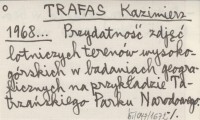 TRAFAS Kazimierz
1968... Przydatność zdjęć
lotniczych terenów wysoko-
górskich w badaniach geogra-
ficznych na przykładzie Ta-
trzańskiego Parku Narodowego.